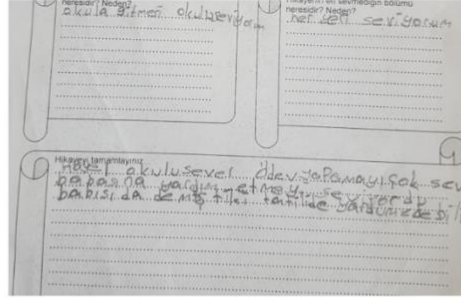 neresidir? Neden?
okula gitmen okulu seviyorum
Hikayenin en sevmediğin bölümü
neresidir? Neden?
her yeri seviyorum
Hikayeyi tamamlayınız
okulu sever ödev yapamayı çok sev
babasına yardım etmeyi seviyordu
babısı da demiş tatilde